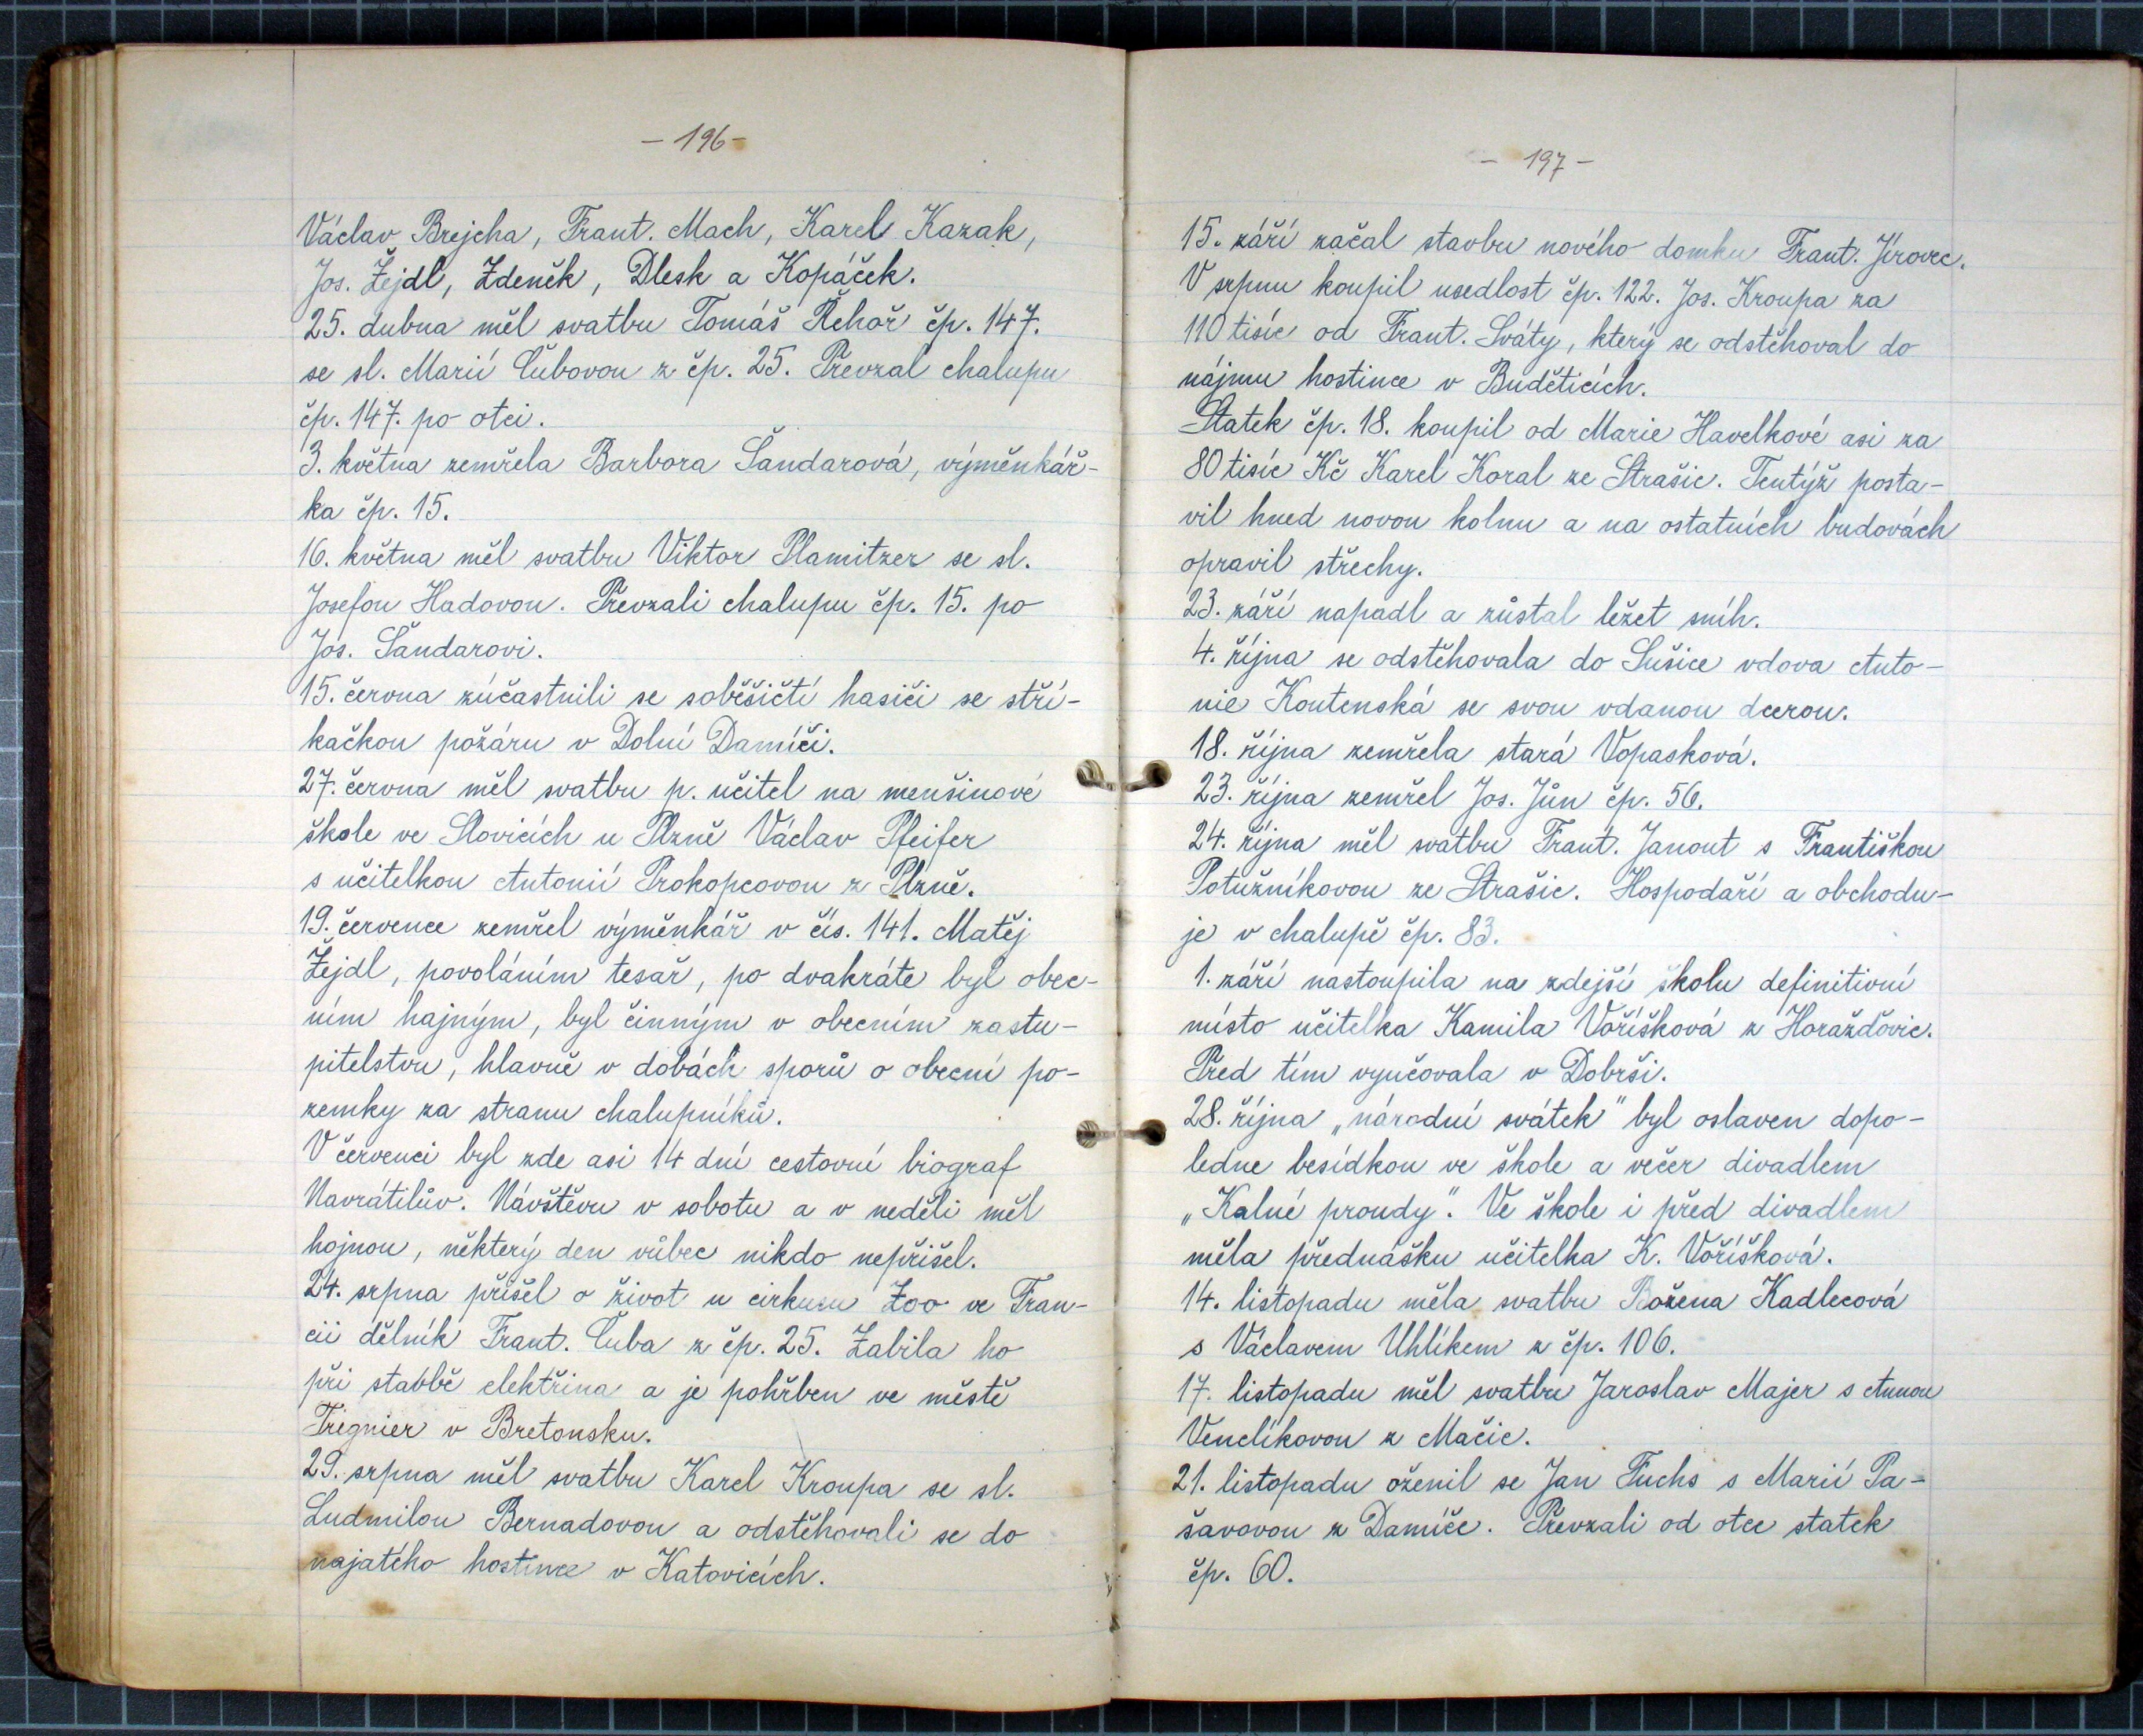 - 196 -
Václav Brejcha, Frant. Mach, Karel Kazak,
Jos. Žejdl, Zdeněk, Dlesk a Kopáček.
25. dubna měl svatbu Tomáš Řehoř čp. 147.
se sl. Marií Čubovou z čp. 25. Převzal chalupu
čp. 147. po otci.
3. května zemřela Barbora Šandarová, výměnkář-
ka čp. 15.
16. května měl svatbu Viktor Plamitzer se sl.
Josefou Hadovou. Převzali chalupu čp. 15. po
Jos. Šandarovi.
15. června zúčastnili se soběšičtí hasiči se stří-
kačkou požáru v Dolní Damíči.
27. června měl svatbu p. učitel na menšinové
škole ve Slovicích u Plzně Václav Pfeifer
s učitelkou Antonií Prokopcovou z Plzně.
19. července zemřel výměnkář v čís. 141. Matěj
Žejdl, povoláním tesař, po dvakráte byl obec-
ním hajným, byl činným v obecním zastu-
pitelstvu, hlavně v dobách sporů o obecní po-
zemky za stranu chalupníků.
V červenci byl zde asi 14 dní cestovní biograf
Navrátilův. Návštěvu v sobotu a v neděli měl
hojnou, některý den vůbec nikdo nepřišel.
24. srpna přišel o život u cirkusu Zoo ve Fran-
cii dělník Frant. Čuba z čp. 25. Zabila ho
při stavbě elektřina a je pohřben ve městě
Trignier v Bretonsku.
29. srpna měl svatbu Karel Kroupa se sl.
Ludmilou Bernadovou a odstěhovali se do
najatého hostince v Katovicích.
- 197 -
15. září začal stavbu nového domku Frant. Jírovec.
V srpnu koupil usedlost čp. 122. Jos. Kroupa za
110 tisíc od Frant. Sváty, který se odstěhoval do
nájmu hostince v Buděticích.
Statek čp. 18. koupil od Marie Havelkové asi za
80 tisíc Kč Karel Koral ze Strašic. Tentýž posta-
vil hned novou kolnu a na ostatních budovách
opravil střechy.
23. září napadl a zůstal ležet sníh.
4. října se odstěhovala do Sušice vdova Anto-
nie Koutenská se svou vdanou dcerou.
18. října zemřela stará Vopasková.
23. října zemřel Jos. Jůn čp. 56.
24. října měl svatbu Frant. Janout s Františkou
Potužníkovou ze Strašic. Hospodaří a obchodu-
je v chalupě čp. 83.
1. září nastoupila na zdejší školu definitivní
místo učitelka Kamila Voříšková z Horažďovic.
Před tím vyučovala v Dobrši.
28. října „národní svátek" byl oslaven dopo-
ledne besídkou ve škole a večer divadlem
„Kalné proudy". Ve škole i před divadlem
měla přednášku učitelka K. Voříšková.
14. listopadu měla svatbu Božena Kadlecová
s Václavem Uhlíkem z čp. 106.
17. listopadu měl svatbu Jaroslav Majer s Annou
Venclíkovou z Mačic.
21. listopadu oženil se Jan Fuchs s Marií Pa-
šavovou z Damíče. Převzali od otce statek
čp. 60.